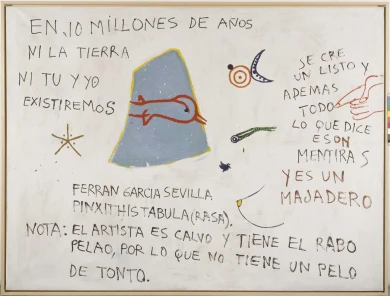 EN 10 MILLONES DE AÑOS
NI LA TIERRA
NI TU Y YO
EXISTIREMOS
SE CRE
UN LISTO Y
ADEMAS
TODO
LO QUE DICE
ES ON
MENTIRAS
Y ES UN
MAJADERO
FERRAN GARCIA SEVILLA
PINXIT HIS TABULA (RASA).
NOTA: EL ARTISTA ES CALVO Y TIENE EL RABO
PELAO, POR LO QUE NO TIENE UN PELO
DE TONTO.